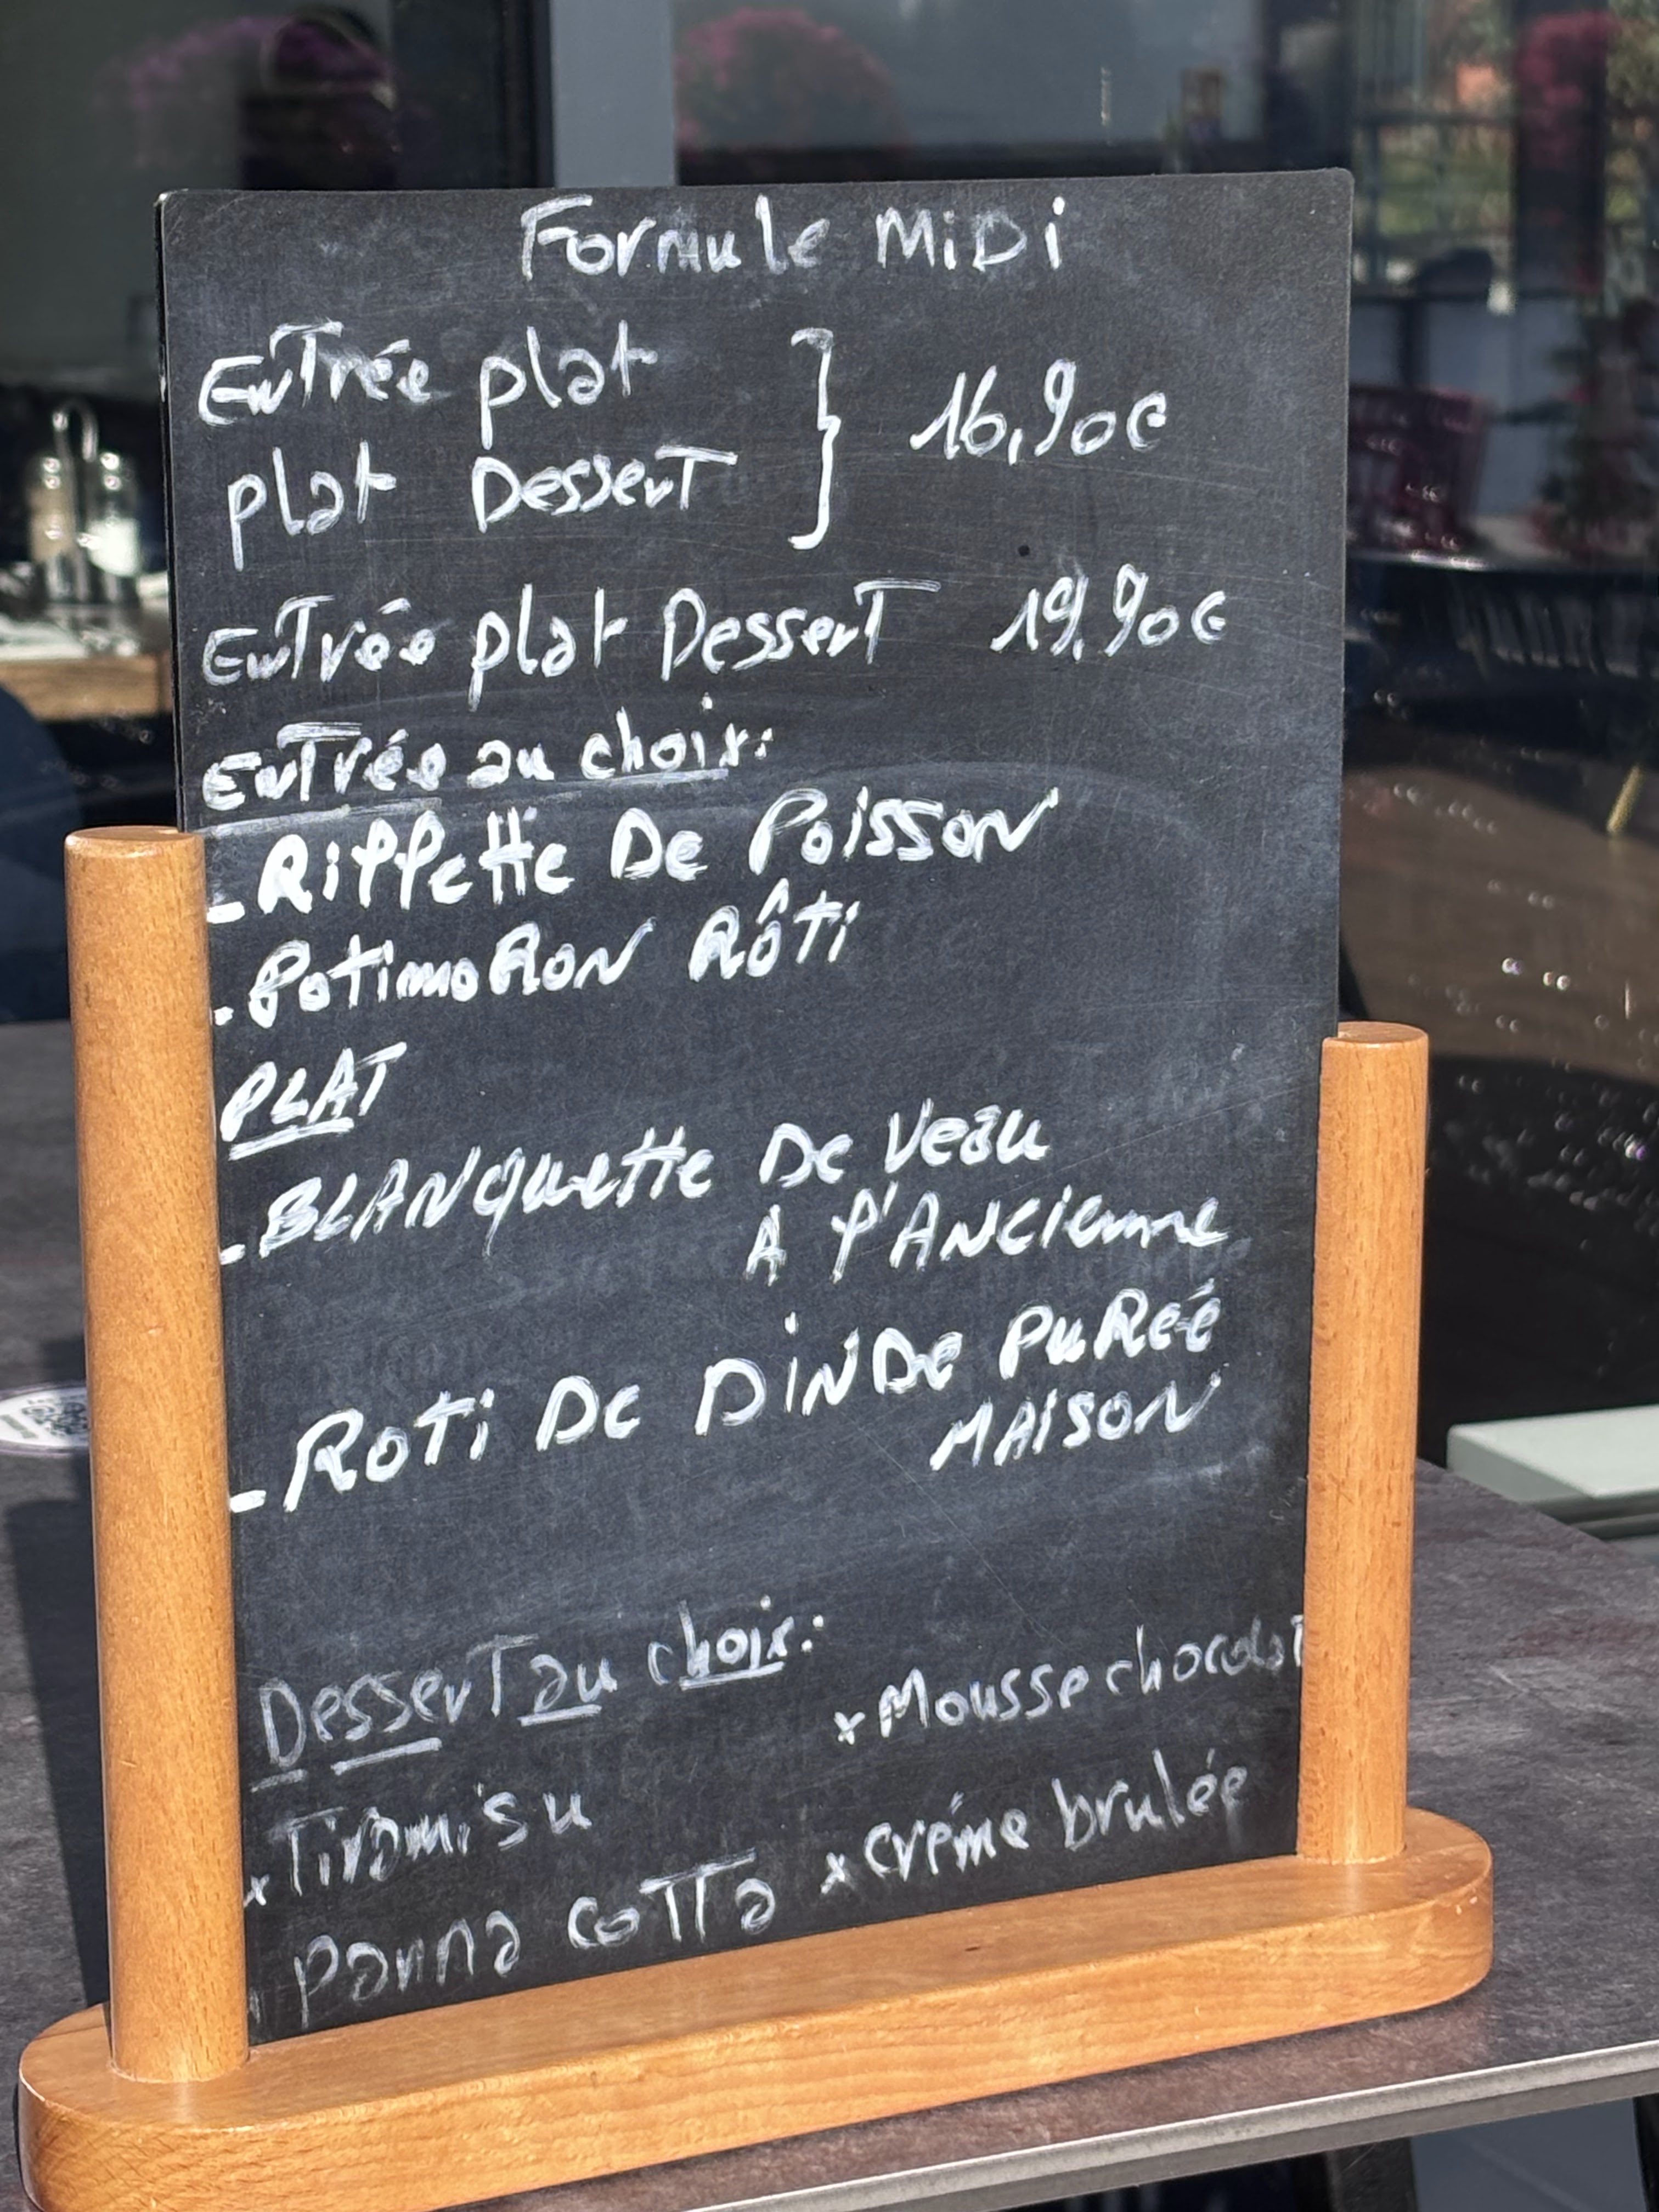 Formule MiDi
Entrée plat
plat Dessert } 16,90€
Entrée plat Dessert 19,90€
Entrée au choix:
- Riffette De Poisson
- Potimoron Rôti
PLAT
- BLANquette De Veau
A l'ANcienne
- Roti De DiNDe PuRée
MAISON
Dessert au choix:
x Mousse chocolat
x Tiramisu
x créme brulée
panna cotta